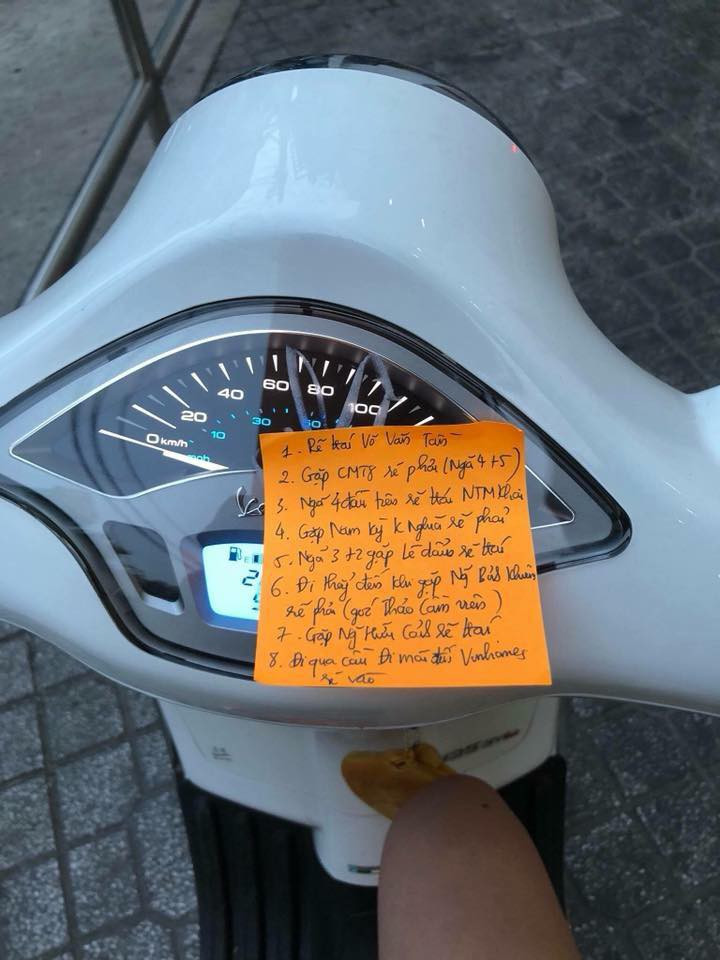 0 km/h
20
40
60
80
100
mph
10
30
E
1. Rẽ trái Võ Văn Tần
2. Gặp CMT8 rẽ phải (Ngã 4+5)
3. Ngã 4 đầu tiên rẽ trái NTMKhai
4. Gặp Nam Kỳ K Nghĩa rẽ phải
5. Ngã 3 +2 gặp Lê Duẩn rẽ trái
6. Đi thẳng đến khi gặp Ng Bỉnh Khiêm
rẽ phải (góc Thảo Cầm Viên)
7. Gặp Ng Hữu Cảnh rẽ trái
8. Đi qua cầu Đi mãi đến Vinhomes
rẽ vào